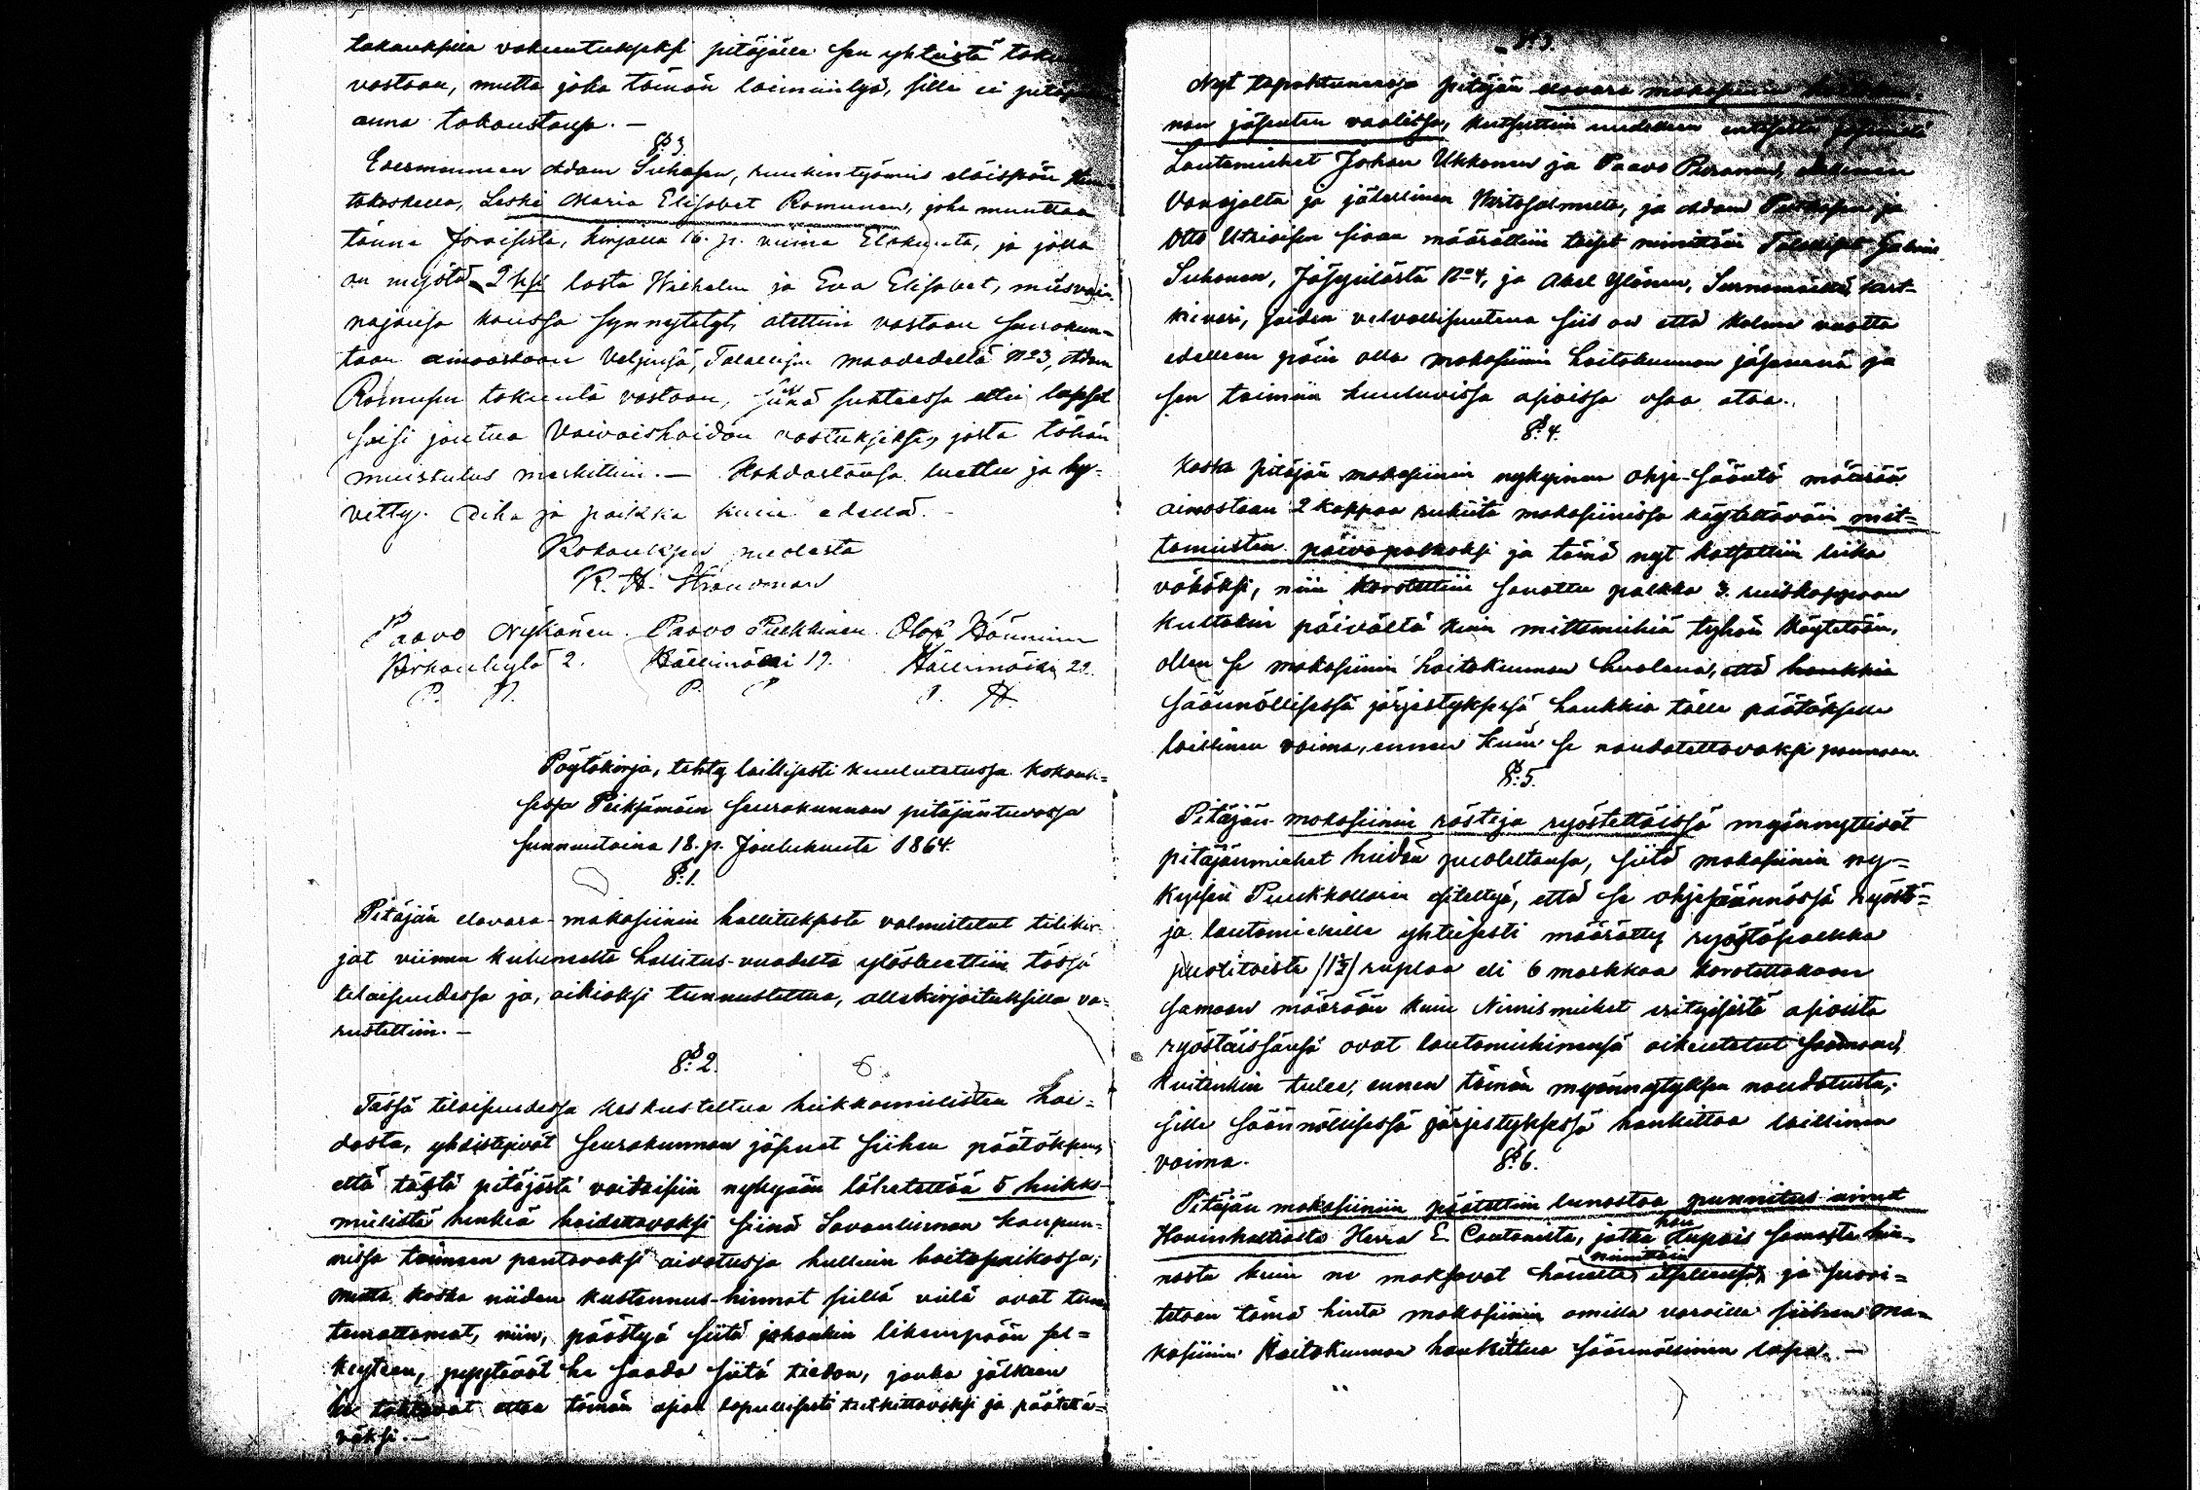 takauksilla vakuutukseksi pitäjälle sen yhteistä
vastaan, mutta joka tämän laiminlyö, sille ei
anna takaustansa. —
§ 3.
Edesmenneen Adam Siikasen, ruukin työmies eläissään
Leski Maria Elisabet Romunen, joka muuttaa
tänne Joroisista, kirjalla 16. p. viime Elokuuta, ja jolla
on myötä 2 lasta Wilhelm ja Eva Elisabet, miesvai-
najansa kanssa synnytetyt, otettiin vastaan seurakun-
taan ainoastaan Veljensä, Talollisen N:o 3, Adam
Romusen takuuta vastaan, siinä suhteessa ettei lapset
saisi joutua Vaivaishoidon vastukseksi, josta tähän
muistutus merkittiin. — Kohdastansa luettu ja hy-
vetty. Aika ja paikka kuin edellä. —
Kokouksen puolesta
K. H. Strandman
Paavo Nykänen. Paavo Pulkkinen. Olof Hänninen
2. 19. 22.
P. N. P. P. O. H.
Pöytäkirja, tehty laillisesti kuulutetussa kokouk-
sessa Pieksämäen seurakunnan pitäjäntuvassa
sunnuntaina 18. p. Joulukuuta 1864.
§ 1.
Pitäjän elovara-makasiinin hallitukselta valmistetut tilikir-
jat viimen kuluneelta hallitus-vuodelta ylösluettiin tässä
tilaisuudessa ja, oikioksi tunnustettua, allekirjoituksilla va-
rustettiin. —
§ 2.
Tässä tilaisuudessa keskusteltua heikkomielisten hoi-
dosta, yhdistyivät seurakunnan jäsenet siihen päätökseen,
että tästä pitäjästä voitaisiin nykyään lähetettää 5 heikko-
mielistä henkiä hoidettavaksi siinä Savonlinnan kaupun-
nissa toimeen pantavaksi aivotussa hulluin hoitopaikassa;
mutta koska niiden kustannus-hinnat sillä vielä ovat tun-
temattomat, niin, päästyä siitä johonkin likempään sel-
keyteen, pyytävät he saada siitä tiedon, jonka jälkeen
he tahtovat ottaa tämän asian lopullisesti tutkittavaksi ja päätettä-
väksi. —
§ 3.
Nyt tapahtuneessa pitäjän elovara makasiinin
nan jäsenten vaalissa, kutsuttiin uudelleen entisistä jäsenistä
Lautamiehet Johan Ukkonen ja Paavo
ja jälellinen ja Adam ja
Otto sijaan määrättiin taiset nimittäin Talolliset
Suhonen, N:o 4, ja Abel Ylönen,
joiden velvollisuutena siis on että kolme vuotta
edelleen päin olla makasiinin hoitokunnan jäsenenä ja
sen toimiin kuuluvissa asioissa osaa ottaa.
§ 4.
Koska pitäjän makasiinin nykyinen ohje-sääntö määrää
ainostaan 2 kappaa rukiita makasiinissa käytettäväin mit-
tamiesten päiväpalkaksi ja tämä nyt katsottiin liika
vähäksi, niin korotettiin sanottu palkka 3. ruiskappaan
kultakin päivältä kuin mittamiehiä työhön käytetään,
ollen se makasiinin hoitokunnan huolena, että hankkia
säännöllisessä järjestyksessä hankkia tälle päätökselle
laillinen voima, ennen kuin se noudatettavaksi pannaan.
§ 5.
Pitäjän makasiinin rästejä ryöstettäissä myönnyttivät
pitäjänmiehet heidän puolestansa, siitä makasiinin ny-
kyisen esiteltyä, että se ohjesäännössä ryöstö-
ja lautamiehille yhteisesti määrätty ryöstöpalkka
puolitoista /1½/ ruplaa eli 6 markkaa korotettakoon
samaan määrään kuin Nimismiehet erityisistä asioista
ryöstäissänsä ovat lautamiehinensä oikeutetut saamaan,
kuitenkin tulee, ennen tämän myönnytyksen noudatusta,
sille säännöllisessä järjestyksessä hankittaa laillinen
voima.
§ 6.
Pitäjän makasiiniin päätettiin lunastaa punnitus aineet
Herra E. jotka hän lupais samasta hin-
nasta kuin ne maksavat hänelle nimittäin itsellensä, ja suori-
tetaan tämä hinta makasiinin omilla varoilla siihen ma-
kasiinin Hoitokunnan hankittua säännöllinen lupa. —